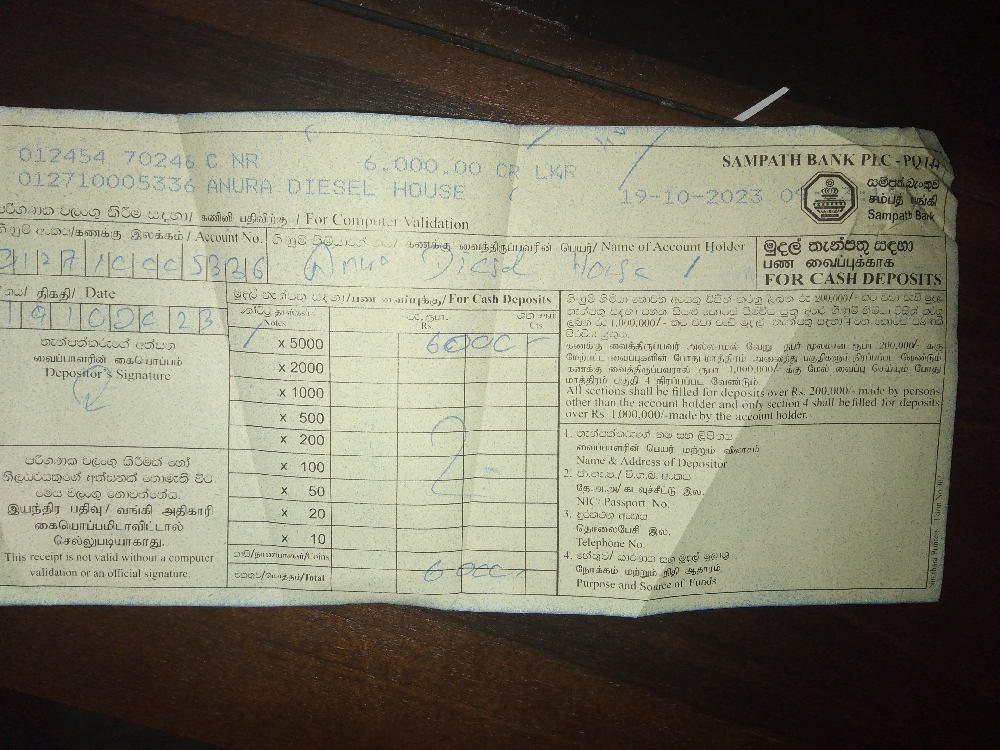 012454 70246 C NR 6,000.00 CR LKR
012710005336 ANURA DIESEL HOUSE 19-10-2023
SAMPATH BANK PLC -
සම්පත් බැංකුව
சம்பத் வங்கி
Sampath Bank
පරිගණක වලංගු කිරීම සඳහා / கணினி பதிவிற்கு / For Computer Validation
ගිණුම් අංකය/கணக்கு இலக்கம் / Account No.
127100005336
ගිණුම් හිමියාගේ නම/ கணக்கு வைத்திருப்பவரின் பெயர்/ Name of Account Holder
Anura Diesel House
මුදල් තැන්පතු සඳහා
பண வைப்புக்காக
FOR CASH DEPOSITS
දිනය/ திகதி / Date
19 10 23
තැන්පත්කරුගේ අත්සන
வைப்பாளரின் கையொப்பம்
Depositor's Signature
පරිගණක වලංගු කිරීමක් හෝ
නිලධරයකුගේ අත්සනක් නොමැති විට
මෙය වලංගු නොවන්නේය.
இயந்திர பதிவு/ வங்கி அதிகாரி
கையொப்பமிடாவிட்டால்
செல்லுபடியாகாது.
This receipt is not valid without a computer
validation or an official signature.
මුදල් තැන්පතු සඳහා/பண வைப்புக்கு/ For Cash Deposits
Notes
රු./ரூபா. Rs.
ශත/சதம் Cts.
x 5000 6000
x 2000
x 1000
x 500
x 200
x 100
x 50
x 20
x 10
කාසි/நாணயங்கள்/Coins
එකතුව/மொத்தம்/Total 6000
கணக்கு வைத்திருப்பவர் அல்லாமல் வேறு நபர் மூலமான ரூபா 200,000/- க்கு
மேற்பட்ட வைப்புகளின் போது மாத்திரம் அனைத்து பகுதிகளும் நிரப்பப்பட வேண்டும்
கணக்கு வைத்திருப்பவரால் ரூபா 1,000,000/- க்கு மேல் வைப்பு செய்யும் போது
மாத்திரம் பகுதி 4 நிரப்பப்பட வேண்டும்.
All sections shall be filled for deposits over Rs. 200,000/- made by persons
other than the account holder and only section 4 shall be filled for deposits
over Rs. 1,000,000/-made by the account holder.
1. තැන්පත්කරුගේ නම සහ ලිපිනය
வைப்பாளரின் பெயர் மற்றும் விலாசம்
Name & Address of Depositor
2.
தே.அ.அ/ கடவுச்சீட்டு இல.
NIC/ Passport No.
3. දුරකථන අංකය
தொலைபேசி இல.
Telephone No.
4.
நோக்கம் மற்றும் நிதி ஆதாரம்
Purpose and Source of Funds